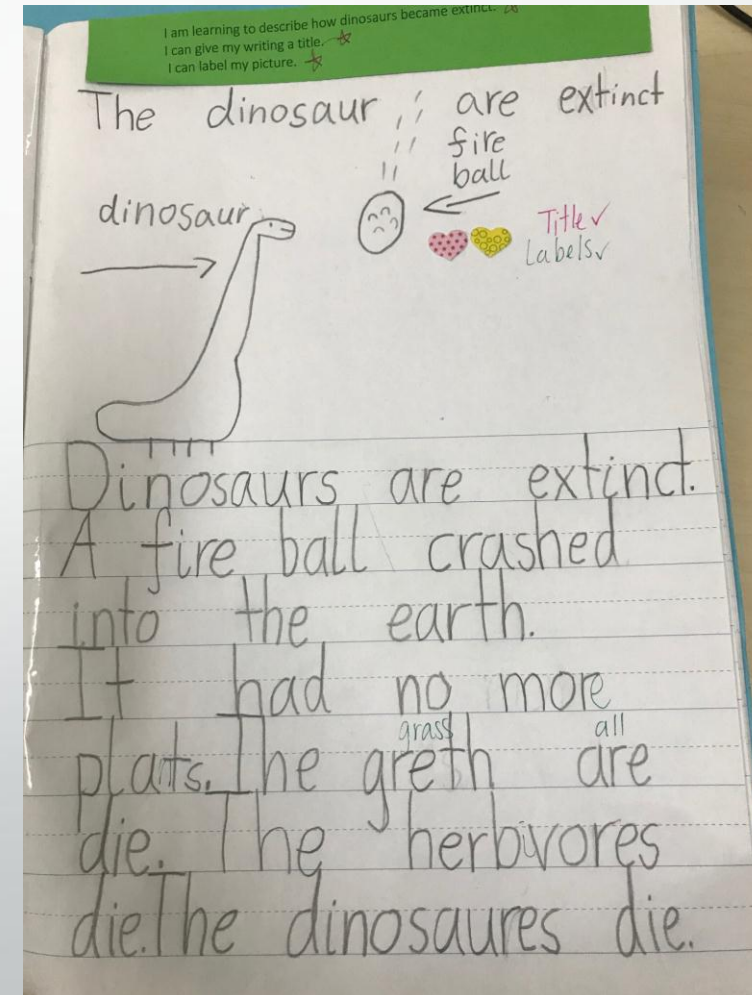 I am learning to describe how dinosaurs became extinct.
I can give my writing a title.
I can label my picture.
The dinosaur are extinct
fire
ball
dinosaur
Title✓
Labels✓
Dinosaurs are extinct.
A fire ball crashed
into the earth.
It had no more
grass all
plats. The greth are
die. The herbivores
die. The dinosaures die.